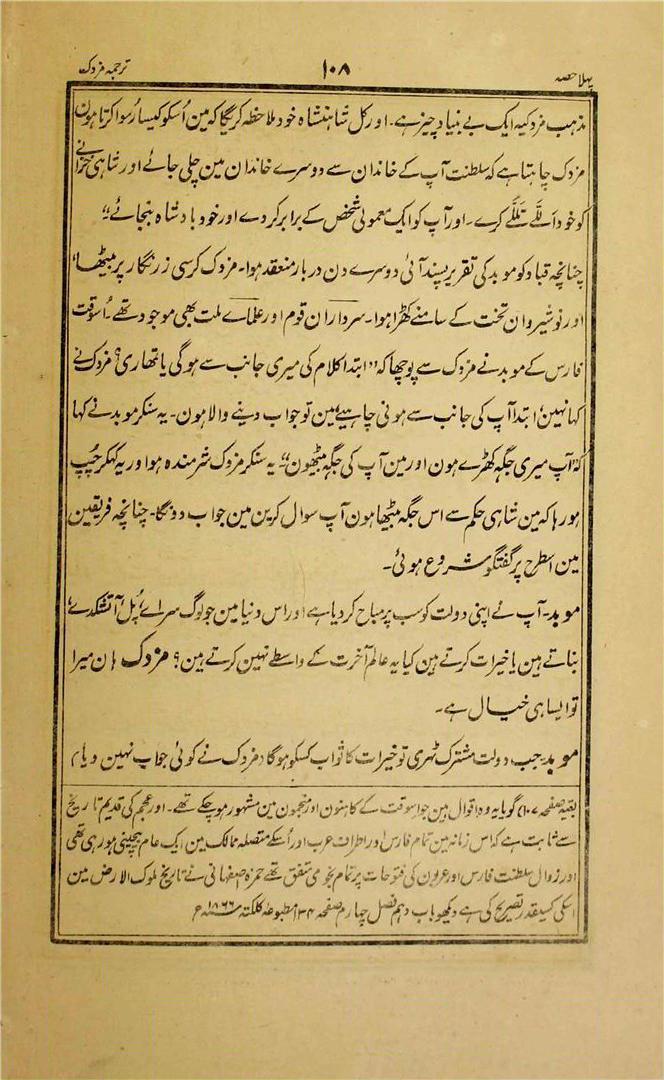 پہلا حصہ
۱۰۸
ترجمہ مزدک
مذہب مزدکیہ ایک بے بنیاد چیز ہے۔ اور کل شاہنشاہ خود ملاحظہ کریگا کہ مین اُسکو کیسا رسوا کرتا ہون
مزدک چاہتا ہے کہ سلطنت آپ کے خاندان سے دوسرے خاندان مین چلی جائے اور شاہی خزانے
کو خود اَللّے تَلَلّے کرے۔ اور آپ کو ایک معمولی شخص کے برابر کر دے اور خود بادشاہ بنجائے‘‘
چنانچہ قباد کو موبد کی تقریر پسند آئی دوسرے دن دربار منعقد ہوا۔ مزدک کرسی زرنگار پر بیٹھا‘
اور نوشیروان تخت کے سامنے کھڑا ہوا۔ سرداران قوم اور علماے ملت بھی موجود تھے۔ اُسوقت
فارس کے موبد نے مزدک سے پوچھا کہ ’’ابتدا کلام کی میری جانب سے ہوگی یا تمھاری؟ مزدک نے
کہا نہین‘ ابتدا آپ کی جانب سے ہونی چاہیے‘ مین تو جواب دینے والا ہون۔ یہ سنکر موبد نے کہا
کہ ’’آپ میری جگہ کھڑے ہون اور مین آپ کی جگہ بیٹھون‘‘ یہ سنکر مزدک شرمندہ ہوا اور یہ کہکر چپ
ہو رہا کہ مین شاہی حکم سے اس جگہ بیٹھا ہون آپ سوال کرین مین جواب دونگا۔ چنانچہ فریقین
مین اسطرح پر گفتگو شروع ہوئی۔
موبد۔ آپ نے اپنی دولت کو سب پر مباح کر دیا ہے اور اس دنیا مین جو لوگ سراے‘ پُل‘ آتشکدے‘
بناتے ہین یا خیرات کرتے ہین کیا یہ عالم آخرت کے واسطے نہین کرتے ہین؟ مزدک ہان میرا
تو ایسا ہی خیال ہے۔
موبد۔ جب دولت مشترک ٹہری تو خیرات کا ثواب کسکو ہوگا؟ مزدک نے کوئی جواب نہین دیا۔
(بقیہ صفحہ ۱۰۷) گویا یہ وہ اقوال ہین جو اسوقت کے کاہنون اور منجمون مین مشہور ہو چکے تھے۔ اور عجم کی قدیم تاریخ
سے ثابت ہے کہ اس زمانہ مین تمام فارس اور اطراف عرب اور اُسکے متصلہ ممالک مین ایک عام بیچینی ہو رہی تھی
اور زوال سلطنت فارس اور عربون کی فتوحات پر تمام نجومی متفق تھے حمزہ اصفہانی نے تاریخ ملوک الارض مین
اسکی کسیقدر تصریح کی ہے دیکھو باب دہم فصل چہارم صفحہ ۱۳۴ مطبوعہ کلکتہ ۱۸۶۶ء